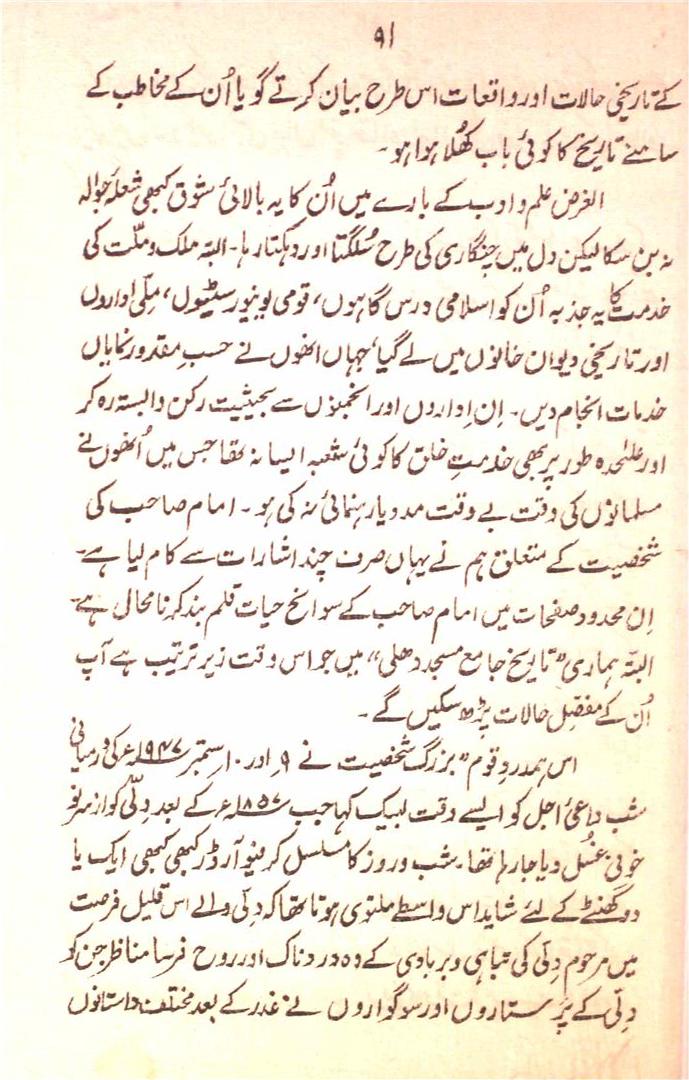 ۹۱
کے تاریخی حالات اور واقعات اس طرح بیان کرتے گویا اُن کے مخاطب کے
سامنے تاریخ کا کوئی باب کُھلا ہوا ہو۔
الغرض علم و ادب کے بارے میں اُن کا یہ بالائی شوق کبھی شعلۂ جوالہ
نہ بن سکا لیکن دل میں چنگاری کی طرح سُلگتا اور دہکتا رہا۔ البتہ ملک و ملّت کی
خدمت کا یہ جذبہ اُن کو اسلامی درس گاہوں، قومی یونیورسٹیوں، ملّی اداروں
اور تاریخی دیوان خانوں میں لے گیا، جہاں انھوں نے حسبِ مقدور نمایاں
خدمات انجام دیں۔ اِن اداروں اور انجمنوں سے بحیثیت رکن وابستہ رہ کر
اور علٰحدہ طور پر بھی خدمتِ خلق کا کوئی شعبہ ایسا نہ تھا جس میں اُنھوں نے
مسلمانوں کی وقت بے وقت مدد یا رہنمائی نہ کی ہو۔ امام صاحب کی
شخصیت کے متعلق ہم نے یہاں صرف چند اشارات سے کام لیا ہے۔
اِن محدود صفحات میں امام صاحب کے سوانح حیات قلم بند کرنا محال ہے۔
البتّہ ہماری "تاریخ جامع مسجد دھلی" میں جو اس وقت زیر ترتیب ہے آپ
اُن کے مفصل حالات پڑھ سکیں گے۔
اس ہمدردِ قوم "بزرگ شخصیت نے ۹ر اور ۱۰ر ستمبر ۱۹۴۷ء کی درمیانی
شب داعیِٔ اجل کو ایسے وقت لبیک کہا جب ۱۸۵۷ء کے بعد دِلّی کو از سرِ نو
خونی غسل دیا جا رہا تھا۔ شب و روز کا مسلسل کرفیو آرڈر کبھی کبھی ایک یا
دو گھنٹے کے لئے شاید اس واسطے ملتوی ہوتا تھا کہ دِلّی والے اس قلیل فرصت
میں مرحوم دِلّی کی تباہی و بربادی کے وہ درد ناک اور روح فرسا مناظر جن کو
دِلّی کے پرستاروں اور سوگواروں نے غدر کے بعد مختلف داستانوں